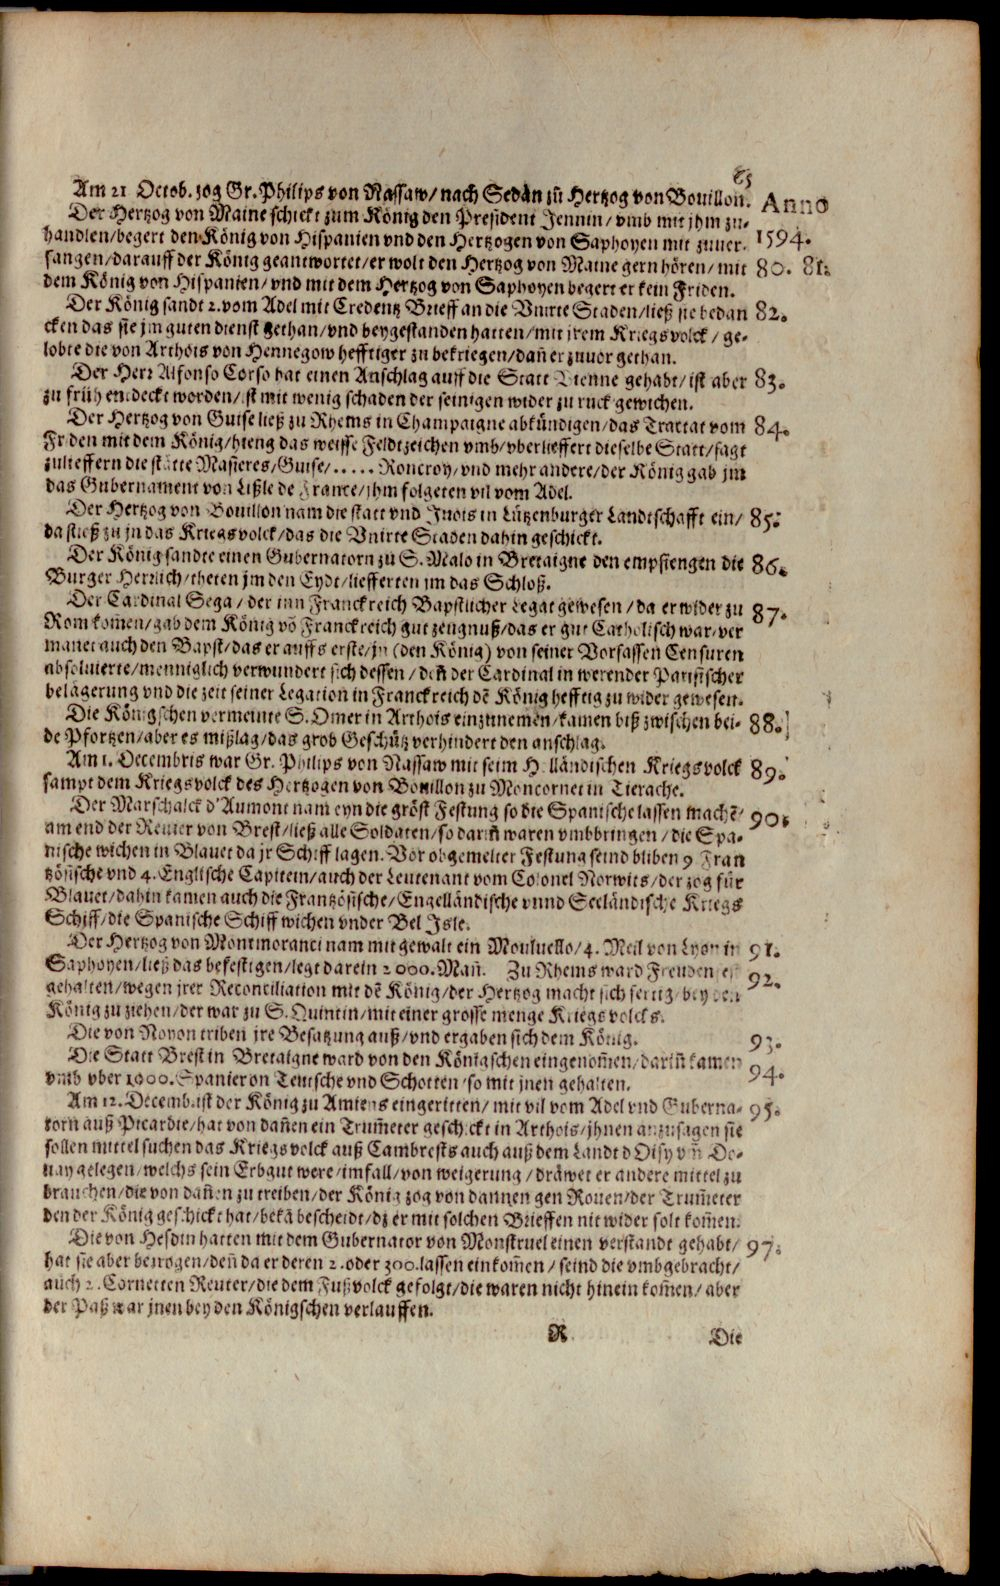 65
Am 21 Octob. zog Gr. Philips von Nassaw/ nach Sedan zů Hertzog von Bouillon.
Anno
Der Hertzog von Maine schickt zum König den President Jennin/ vmb mit jhm zu-
handlen/begert den König von Hispanien vnd den Hertzogen von Saphoyen mit zuuer-
1594.
fangen/darauff der König geantwortet/er wolt den Hertzog von Maine gern hören/ mit
80. 81.
dem König von Hispanien/ vnd mit dem Hertzog von Saphoyen begert er kein Friden.
Der König sandt 2. vom Adel mit Credentz Brieff an die Vnirte Staden/ließ sie bedan
82.
cken das sie jm guten dienst gethan/vnd beygestanden hatten/mit jrem Kriegsvolck/ ge-
lobte die von Arthois von Hennegow hefftiger zu bekriegen/dañ er zuuor gethan.
Der Herr Alfonso Corso hat einen Anschlag auff die Statt Vienne gehabt/ ist aber
83.
zu früh entdeckt worden/ist mit wenig schaden der seinigen wider zu ruck gewichen.
Der Hertzog von Guise ließ zu Rhems in Champaigne abkündigen/das Tractat vom
84.
Friden mit dem König/hieng das weisse Feldtzeichen vmb/vberlieffert dieselbe Statt/sagt
zulieffern die stätte Masieres/Guise/..... Roncroy/vnd mehr andere/der König gab jm
das Gubernament von Lißle de France/jhm folgeten vil vom Adel.
Der Hertzog von Bouillon nam die statt vnd Juois in Lützenburger Landtschafft ein/
85.
da stieß zu jn das Kriegsvolck/das die Vnirte Staden dahin geschickt.
Der König sandte einen Gubernatorn zu S. Malo in Bretaigne den empfiengen die
86.
Burger Herrlich/theten jm den Eydt/liefferten jm das Schloß.
Der Cardinal Sega/ der inn Franckreich Bapstlicher Legat gewesen/da er wider zu
87.
Rom kom̃en/gab dem König võ Franckreich gut zeugnuß/das er gut Catholisch war/ver
manet auch den Bapst/das er auffs erste/jn (den König) von seiner Vorfassen Censuren
absoluierte/menniglich verwundert sich dessen/ deñ der Cardinal in werender Parisischer
belägerung vnd die zeit seiner Legation in Franckreich dẽ König hefftig zu wider gewesen.
Die Königschen vermeinte S. Omer in Arthois einzunemen/kamen biß zwischen bei-
88.
de Pfortzen/aber es mißlag/das grob Geschütz verhindert den anschlag.
Am 1. Decembris war Gr. Philips von Nassaw mit seim Holländischen Kriegsvolck
89.
sampt dem Kriegsvolck des Hertzogen von Bouillon zu Moncornet in Tierache.
Der Marschalck d'Aumont nam eyn die gröst Festung so die Spanische lassen machẽ/
90.
am end der Reuier von Brest/ließ alle Soldaten/so dariñ waren vmbbringen/ die Spa-
nische wichen in Blauet da jr Schiff lagen. Vor obgemelter Festung seind bliben 9 Fran
tzösische vnd 4. Englische Capitein/auch der Leutenant vom Colonel Norwits/der zog für
Blauet/dahin kamen auch die Frantzösische/Engelländische vnnd Seeländische Kriegs
Schiff/die Spanische Schiff wichen vnder Bel Isle.
Der Hertzog von Montmoranci nam mit gewalt ein Mouluello/4. Meil von Lyon in
91.
Saphoyen/ließ das befestigen/legt darein 2000. Mañ. Zu Rhems ward Freuden fest
92.
gehalten/wegen jrer Reconciliation mit dẽ König/der Hertzog macht sich fertig/bey den
König zu ziehen/der war zu S. Quintin/mit einer grosse menge Kriegsvolcks.
Die von Noyon triben jre Besatzung auß/vnd ergaben sich dem König.
93.
Die Statt Brest in Bretaigne ward von den Königschen eingenom̃en/dariñ kamen
94.
vmb vber 1000. Spanieron Teutsche vnd Schotten/so mit jnen gehalten.
Am 12. Decemb. ist der König zu Amiens eingeritten/ mit vil vom Adel vnd Guberna-
95.
torn auß Picardie/hat von dañen ein Trum̃eter geschickt in Arthois/jhnen anzusagen sie
sollen mittel suchen das Kriegsvolck auß Cambresis auch auß dem Landt d Oisy vñ Do-
uay gelegen/welchs sein Erbgut were/im fall/von weigerung/dräwet er andere mittel zu
brauchen/die von dañen zu treiben/der König zog von dannen gen Rouen/der Trum̃eter
den der König geschickt hat/bekã bescheidt/dz er mit solchen Brieffen nit wider solt kom̃en.
Die von Hesdin hatten mit dem Gubernator von Monstruel einen verstandt gehabt/
97.
hat sie aber betrogen/deñ da er deren 2. oder 300. lassen einkom̃en/ seind die vmbgebracht/
auch 2. Cornetten Reuter/die dem Fußvolck gefolgt/die waren nicht hinein kom̃en/ aber
der Paß war jnen bey den Königschen verlauffen.
R
Die